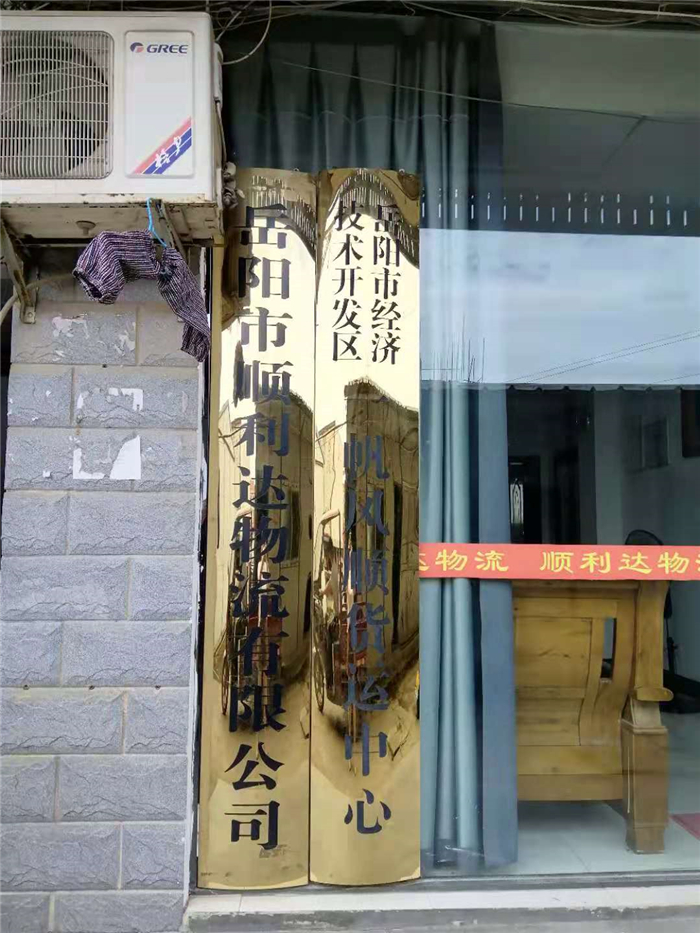 GREE
岳阳市顺利达物流有限公司
岳阳市经济
技术开发区
帆风顺货运中心
达物流 顺利达物流